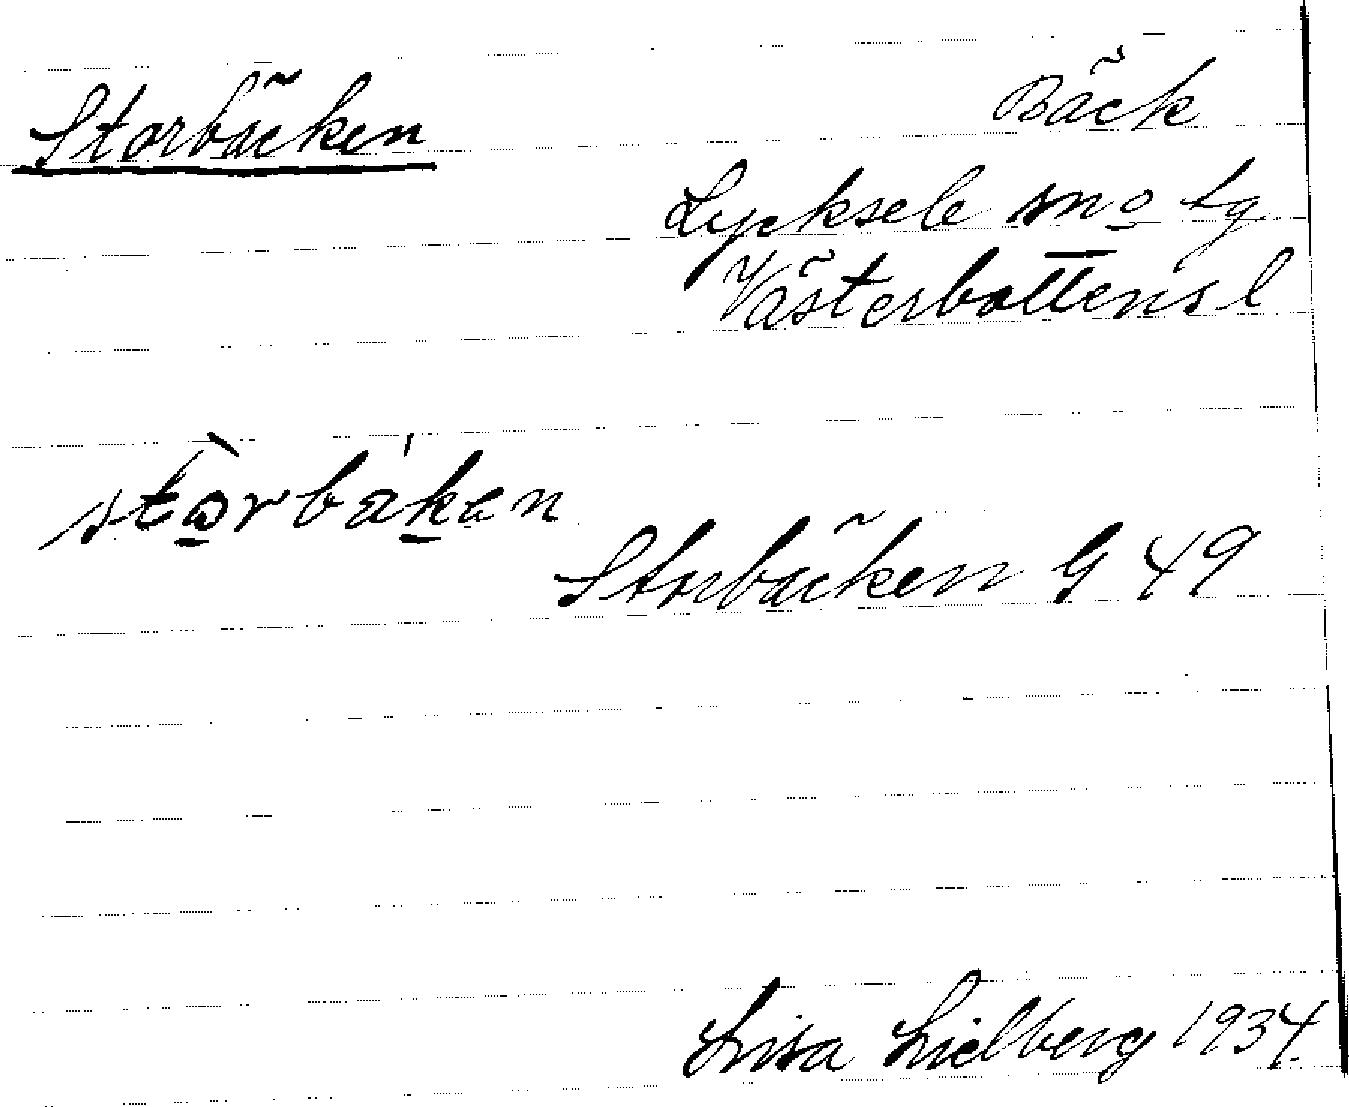 Storbäcken
Bäck
Lycksele sn o tg
Västerbottens l
Storbäcken G 49
Lisa Lidberg 1934.